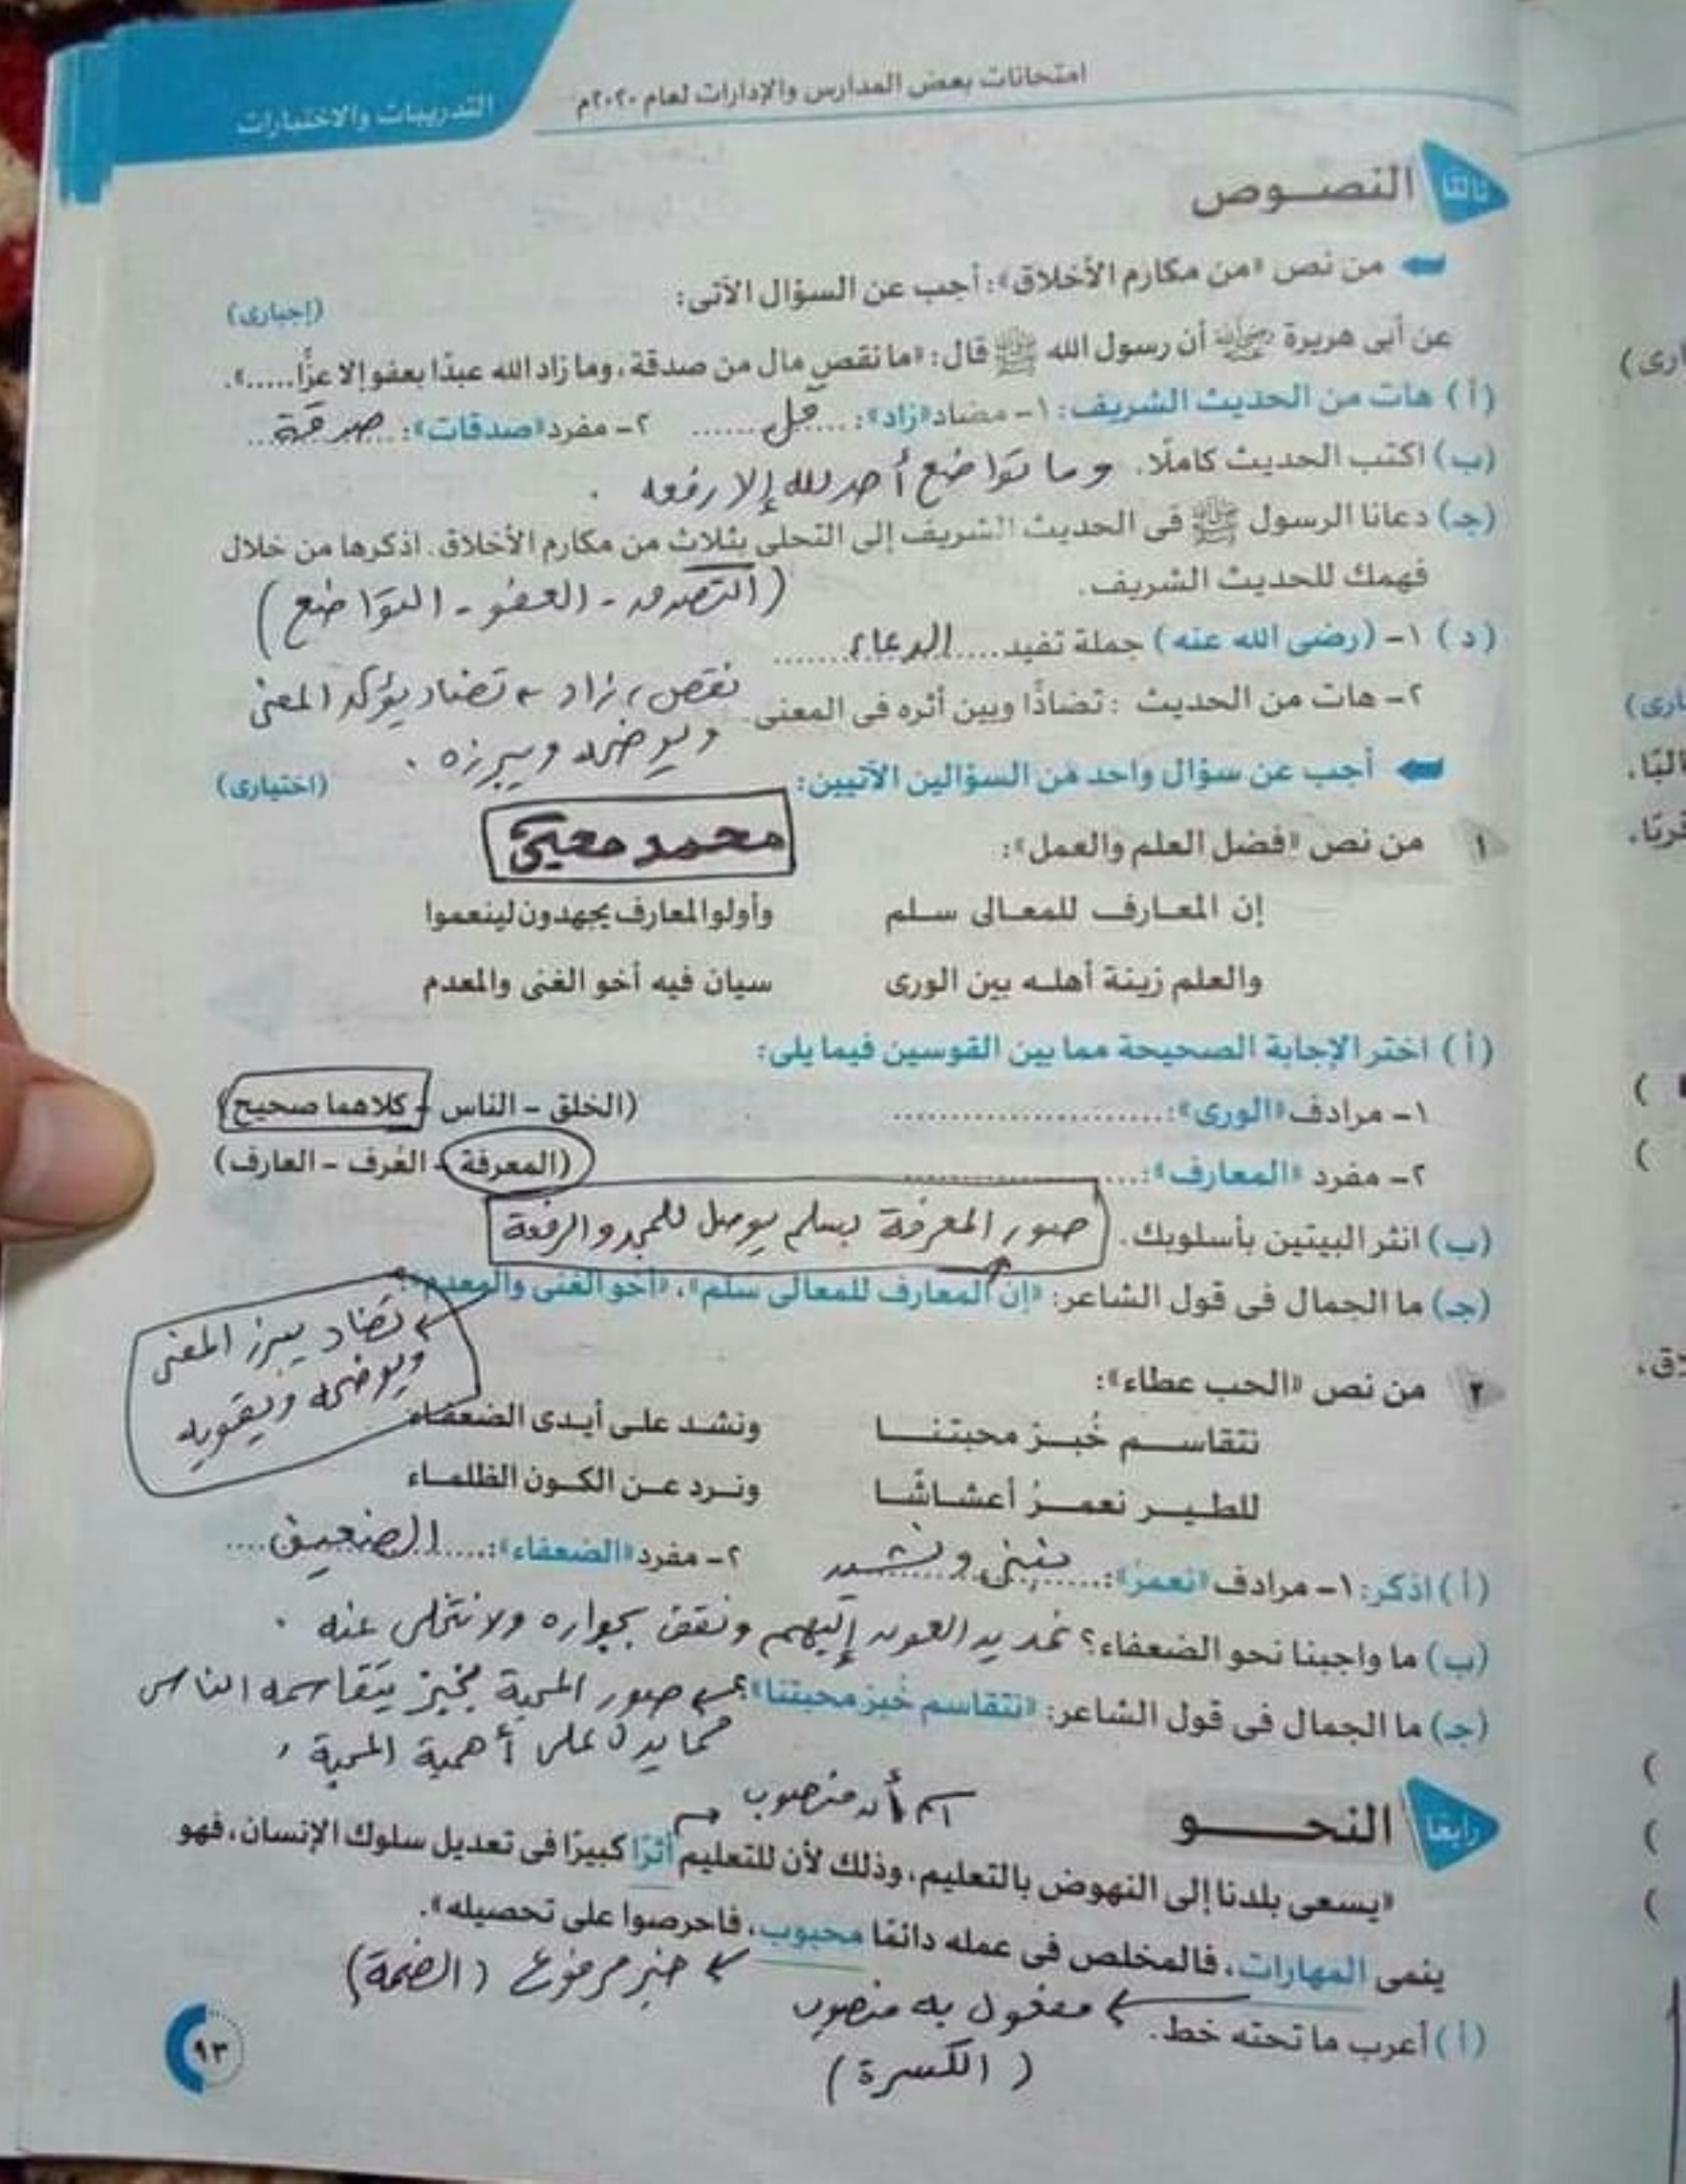 امتحانات بعض المدارس والإدارات لعام ٢٠٢٠م
التدريبات والاختبارات
ثالثا النصوص
من نص «من مكارم الأخلاق»: أجب عن السؤال الآتى:
(إجبارى)
عن أبى هريرة رضي الله عنه أن رسول الله ﷺ قال: «ما نقص مال من صدقة، وما زاد الله عبدًا بعفو إلا عزًّا.....».
(أ) هات من الحديث الشريف: ١- مضاد «زاد»: .....قل..... ٢- مفرد «صدقات»: ...صدقة...
(ب) اكتب الحديث كاملًا. وما تواضع أحد لله إلا رفعه .
(جـ) دعانا الرسول ﷺ فى الحديث الشريف إلى التحلى بثلاث من مكارم الأخلاق. اذكرها من خلال
فهمك للحديث الشريف. (التصدق - العفو - التواضع)
(د) ١- (رضى الله عنه) جملة تفيد....الدعاء........
٢- هات من الحديث : تضادًّا وبين أثره فى المعنى نقص، زاد تضاد يؤكد المعنى
ويوضحه ويبرزه .
أجب عن سؤال واحد من السؤالين الآتيين:
(اختيارى)
محمد معيى
١ من نص «فضل العلم والعمل»:
إن المعارف للمعالى سلم وأولو المعارف يجهدون لينعموا
والعلم زينة أهله بين الورى سيان فيه أخو الغنى والمعدم
(أ) اختر الإجابة الصحيحة مما بين القوسين فيما يلى:
١- مرادف «الورى»: .......................... (الخلق - الناس - كلاهما صحيح)
٢- مفرد «المعارف»: .......................... (المعرفة - العُرف - العارف)
(ب) انثر البيتين بأسلوبك. صور المعرفة بسلم يوصل للمجد والرفعة
(جـ) ما الجمال فى قول الشاعر: «إن المعارف للمعالى سلم»، «أخو الغنى والمعدم»؟
تضاد يبرز المعنى
ويوضحه ويقويه
٢ من نص «الحب عطاء»:
نتقاسم خُبز محبتنا ونشد على أيدى الضعفاء
للطير نعمرُ أعشاشًا ونرد عن الكون الظلماء
(أ) اذكر: ١- مرادف «نعمرُ»: ....نبنى ونشيد ٢- مفرد «الضعفاء»: .....الضعيف....
(ب) ما واجبنا نحو الضعفاء؟ نمد يد العون إليهم ونقف بجواره ولا نتخلى عنه .
(جـ) ما الجمال فى قول الشاعر: «نتقاسم خُبز محبتنا»؟ صور المحبة بخبز يتقاسمه الناس
مما يدل على أهمية المحبة
رابعا النحو
اسم أن منصوب
«يسعى بلدنا إلى النهوض بالتعليم، وذلك لأن للتعليم أثرًا كبيرًا فى تعديل سلوك الإنسان، فهو
ينمى المهارات، فالمخلص فى عمله دائمًا محبوب، فاحرصوا على تحصيله».
خبر مرفوع (الضمة)
(أ) أعرب ما تحته خط. مفعول به منصوب
(الكسرة)
٩٣